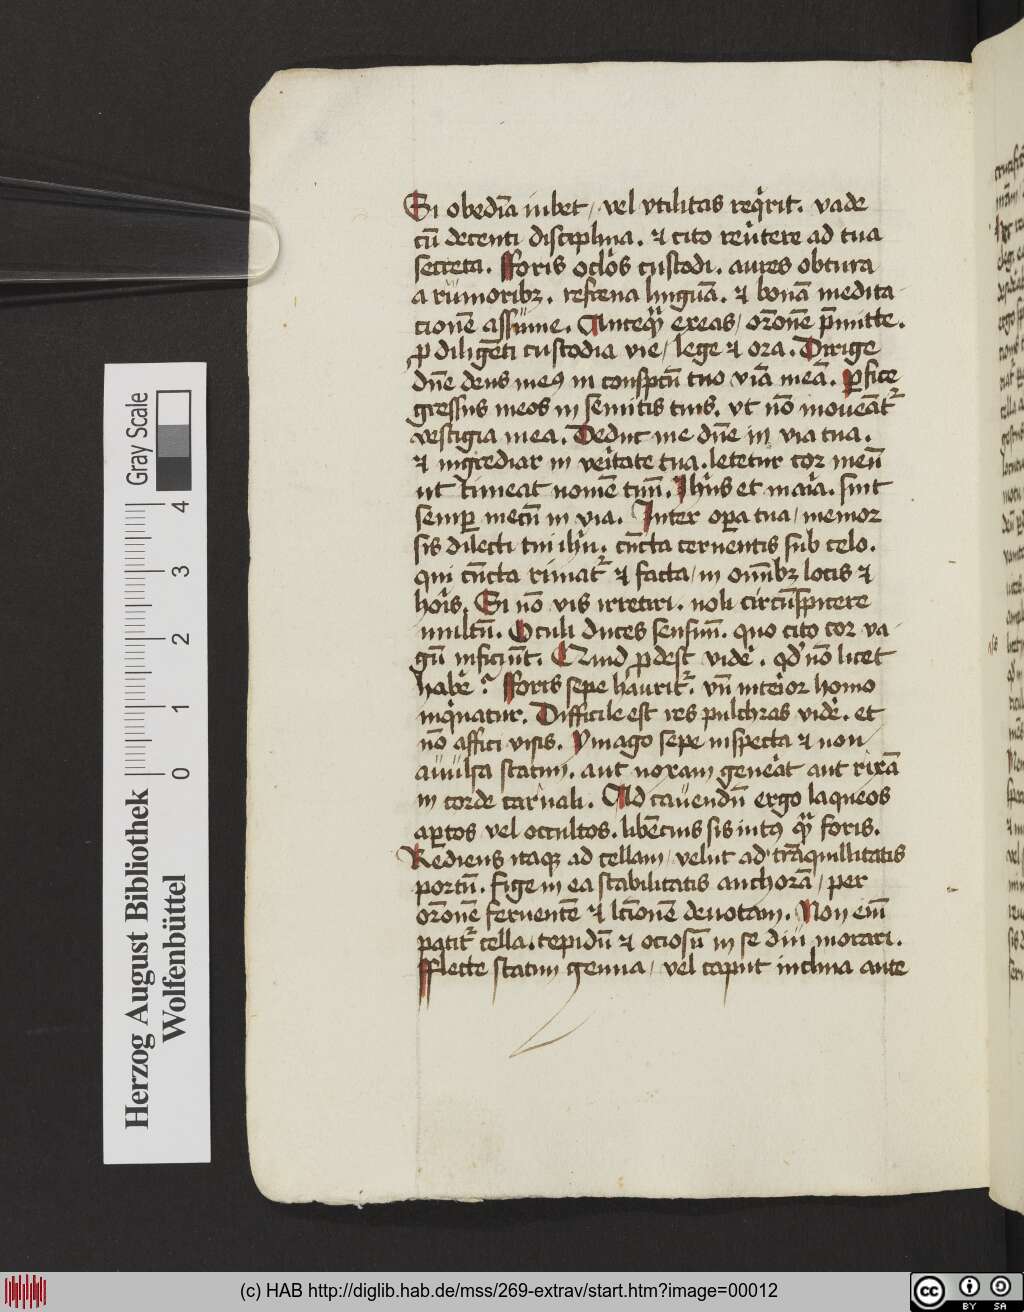 Si obedīa iubet / vel vtilitas reqͥrit. vade
cū decenti disciplina. ⁊ cito reūtere ad tua
secreta. fforis oclōs custodi. aures obtura
a rumoribꝫ. refrena linguā. ⁊ bonā medita
cionē assume. Anteqͣ exeas / orōnē p̄mitte.
ꝓ diligēti custodia vie / lege ⁊ ora. Dirige
dn̄e deus meꝰ in conspc̄tu tuo viā meā. ꝑfice
gressus meos in semitis tuis. vt nō moueāt᷑
vestigia mea. Deduc me dn̄e in via tua.
⁊ ingrediar in veītate tua. letetur cor meū
ut timeat nomē tuū. Jhūs et maīa. sint
semꝑ mecū in via. Inter oꝑa tua / memor
sis dilecti tui ihū. cūcta cernentis sub celo.
qui cūcta rimat᷑ ⁊ facta / in om̄ibꝫ locis ⁊
hoīs. Si nō vis irretiri. noli circūspicere
multū. Oculi duces sensuū. quo cito cor va
gū inficiūt. Quid ꝓdest videˉ. qd̓ nō licet
habeˉ? fforis sepe haurit᷑. vn̄ inteīor homo
inqͥnatur. Difficile est res pulchras videˉ. et
nō affici visis. Ymago sepe inspecta ⁊ non
auulsa statim. aut noxam geneāt aut rixā
in corde carnali. Ad cauendū ergo laqueos
aꝑtos vel occultos. libēcius sis intꝰ qͣ foris.
Rediens itaqꝫ ad cellam / velut ad trāquillitatis
portū. fige in ea stabilitatis anchorā / per
orōnē feruentē ⁊ lc̄ionē deuotam. Non em̄
patit᷑ cella. tepidū ⁊ ociosū in se diu morari.
fflecte statim genua / vel caput inclina ante
Herzog August Bibliothek
Wolfenbüttel
0 1 2 3 4
Gray Scale
(c) HAB http://diglib.hab.de/mss/269-extrav/start.htm?image=00012
cc BY SA